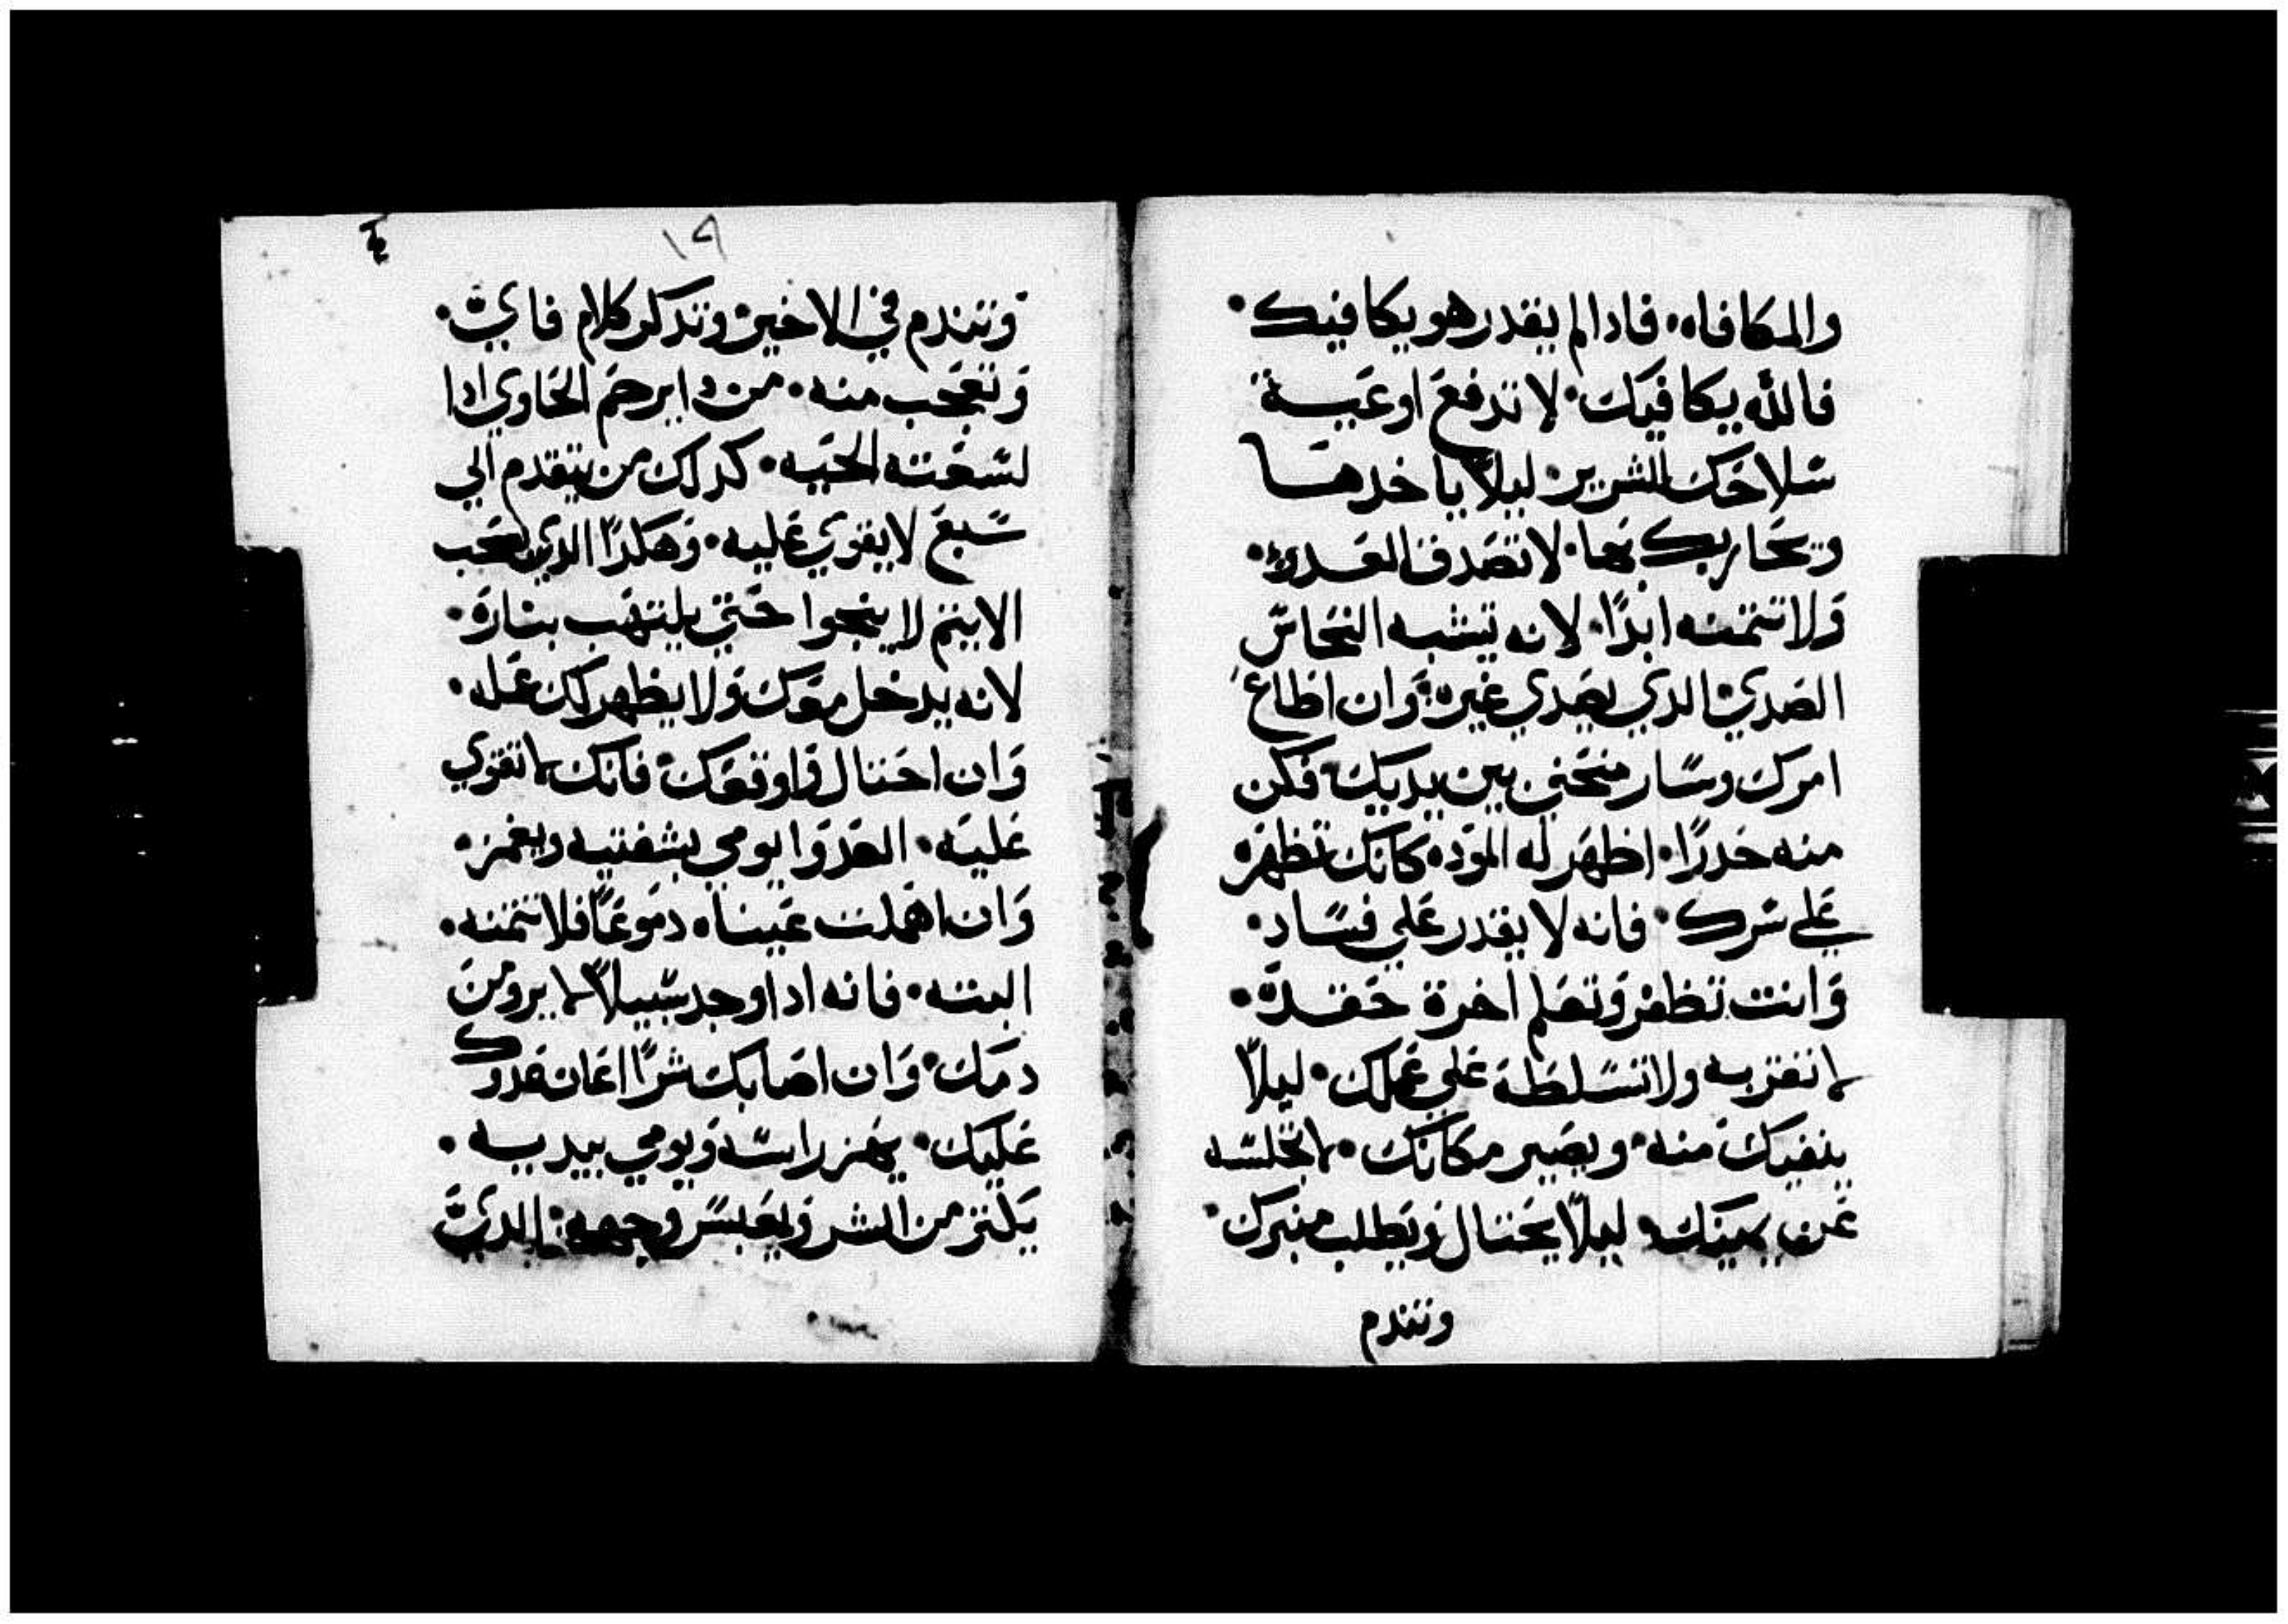 والمكافاه. فادا لم يقدر هو يكافيك.
فالله يكافيك. لا تدفع اوعية
سلاحك للشرير ليلا ياخدها
ويحاربك بها. لا تصدق العدو.
ولا تتمنه ابدًا. لانه يشبه النحاس
الصدي الدي يصدي غيره. وان اطاع
امرك وسار منحني بين يديك فكن
منه حدرًا. اظهر له الموده كانك تظهره
علي سرك. فانه لا يقدر علي فساد.
وانت تظفر وتعلم اخرة حقده.
لا تقربه ولا تسلطه علي عملك. ليلا
ينفيك منه. ويصير مكانك. لا تجلسه
عن يمينك. ليلا يحتال ويطلب منبرك.
وتندم
١٩
وتندم في الاخير وتدكر كلام فاي.
وتعجب منه. من دا يرحم الحاوي ادا
لسعته الحيه. كدلك من يتقدم الي
سبع لا يقوي عليه. وهكدا الدي يصحب
الاثيم لا ينجوا حتي يلتهب بناره.
لانه يدخل معك ولا يظهر لك عمله.
وان احتال واوقعك فانك لا تقوي
عليه. العدوا يومي بشفتيه ويغمز.
وان اهملت عيناه دموعًا فلا تتمنه.
البته. فانه ادا وجد سبيلا لا يروي من
دمك. وان اصابك شرًا اعان عدوك
عليك. يهز راسه ويومي بيديه.
يكتر من الشر ويعبس وجهه. الدي